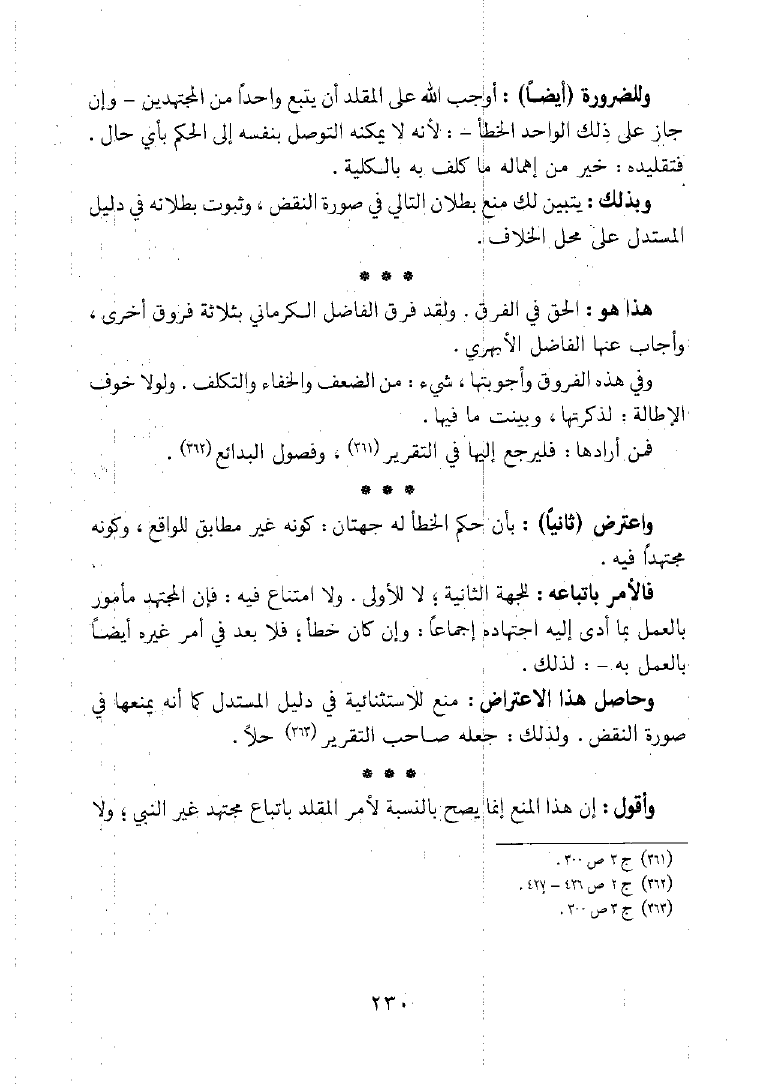 وللضرورة (أيضاً) : أوجب الله على المقلد أن يتبع واحداً من المجتهدين – وإن
جاز على ذلك الواحد الخطأ – : لأنه لا يمكنه التوصل بنفسه إلى الحكم بأي حال .
فتقليده : خير من إهماله ما كلف به بالكلية .
وبذلك : يتبين لك منع بطلان التالي في صورة النقض ، وثبوت بطلانه في دليل
المستدل على محل الخلاف .
* * *
هذا هو : الحق في الفرق . ولقد فرق الفاضل الكرماني بثلاثة فروق أخرى ،
وأجاب عنها الفاضل الأبهري .
وفي هذه الفروق وأجوبتها ، شيء : من الضعف والخفاء والتكلف . ولولا خوف
الإطالة : لذكرتها ، وبينت ما فيها .
فمن أرادها : فليرجع إليها في التقرير (٣٦١) ، وفصول البدائع (٣٦٢) .
* * *
واعترض (ثانياً) : بأن حكم الخطأ له جهتان : كونه غير مطابق للواقع ، وكونه
مجتهداً فيه .
فالأمر باتباعه : للجهة الثانية ؛ لا للأولى . ولا امتناع فيه : فإن المجتهد مأمور
بالعمل بما أدى إليه اجتهاده إجماعاً : وإن كان خطأ ؛ فلا بعد في أمر غيره أيضاً
بالعمل به – : لذلك .
وحاصل هذا الاعتراض : منع للاستثنائية في دليل المستدل كما أنه يمنعها في
صورة النقض . ولذلك : جعله صاحب التقرير (٣٦٣) حلاً .
* * *
وأقول : إن هذا المنع إنما يصح بالنسبة لأمر المقلد باتباع مجتهد غير النبي ؛ ولا
(٣٦١) ج ٣ ص ٣٠٠ .
(٣٦٢) ج ٢ ص ٤٣٦ – ٤٢٧ .
(٣٦٣) ج ٣ ص ٣٠٠ .
٢٣٠